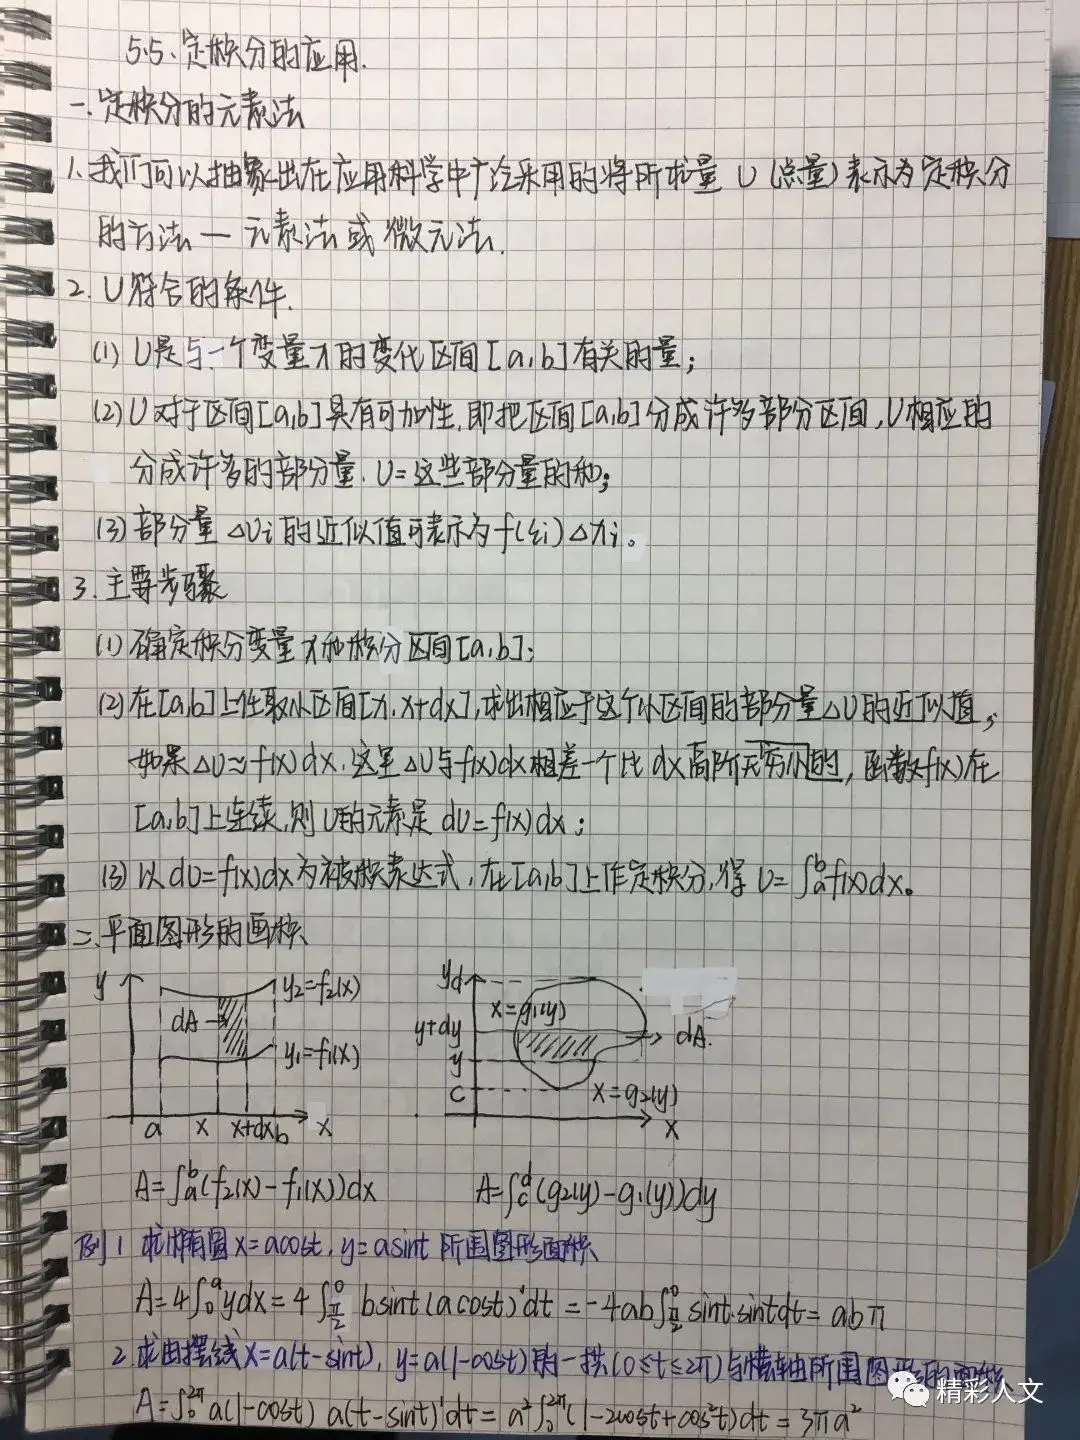 5.5、定积分的应用.
一.定积分的元素法
1.我们可以抽象出在应用科学中广泛采用的将所求量 U (总量)表示为定积分
的方法 — 元素法或微元法.
2. U符合的条件.
(1) U是与一个变量x的变化区间[a,b]有关的量;
(2) U对于区间[a,b]具有可加性,即把区间[a,b]分成许多部分区间,U相应的
分成许多的部分量. U=这些部分量的和;
(3) 部分量 ΔUi 的近似值可表示为f(ξi)Δxi。
3.主要步骤
(1) 确定积分变量x和积分区间[a,b];
(2) 在[a,b]上任取小区间[x,x+dx],求出相应于这个小区间的部分量ΔU的近似值,
如果ΔU≈f(x)dx.这里ΔU与f(x)dx相差一个比dx高阶无穷小的,函数f(x)在
[a,b]上连续,则U的元素是 dU=f(x)dx;
(3) 以dU=f(x)dx为被积表达式,在[a,b]上作定积分,得 U=∫ₐᵇf(x)dx。
二.平面图形的面积
y y₂=f₂(x) dA y₁=f₁(x) a x x+dx b x
y d x=g₁(y) y+dy dA. y c x=g₂(y) x
A=∫ₐᵇ(f₂(x)-f₁(x))dx A=∫_c^d(g₂(y)-g₁(y))dy
例1 求椭圆x=acost,y=asint所围图形面积
A=4∫₀ᵃydx=4∫_{π/2}^0 bsint(acost)'dt=-4ab∫_{π/2}^0 sint·sintdt=abπ
2.求由摆线x=a(t-sint),y=a(1-cost)的一拱(0≤t≤2π)与横轴所围图形的面积
A=∫₀^{2π}a(1-cost) a(t-sint)'dt=a²∫₀^{2π}(1-2cost+cos²t)dt=3πa²
精彩人文